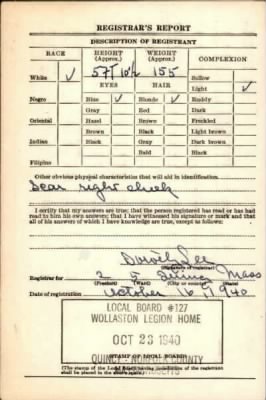 REGISTRAR'S REPORT
DESCRIPTION OF REGISTRANT
RACE HEIGHT (Approx.) WEIGHT (Approx.) COMPLEXION
White ✓ 5 ft 10½ 155 Sallow
EYES HAIR Light ✓
Negro Blue ✓ Blonde ✓ Ruddy
Gray Red Dark
Oriental Hazel Brown Freckled
Brown Black Light brown
Indian Black Gray Dark brown
Bald Black
Filipino
Other obvious physical characteristics that will aid in identification
Scar right cheek
I certify that my answers are true; that the person registered has read or has had read to him his own answers; that I have witnessed his signature or mark and that all of his answers of which I have knowledge are true, except as follows:
(Signature of registrar)
Registrar for 2 5 Quincy Mass
(Precinct) (Ward) (City or county) (State)
Date of registration October 16, 1940
LOCAL BOARD #127
WOLLASTON LEGION HOME
OCT 23 1940
QUINCY - NORFOLK COUNTY
MASSACHUSETTS
STAMP OF LOCAL BOARD
(The stamp of the Local Board having jurisdiction of the registrant shall be placed in the above space.)